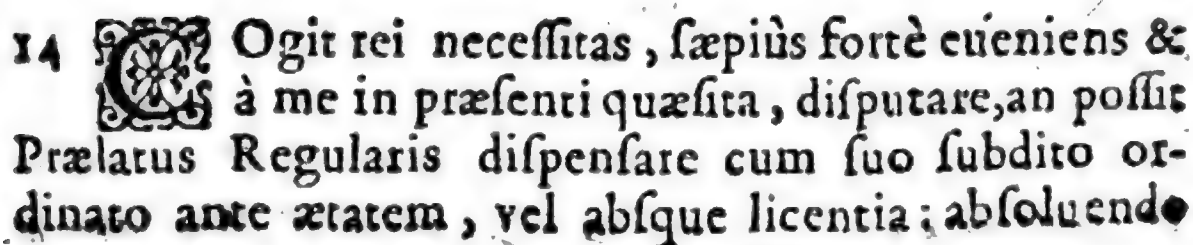 14 COgit rei neceſſitas, ſæpiùs fortè eueniens &
à me in præſenti quæſita, diſputare, an poſſit
Prælatus Regularis diſpenſare cum ſuo ſubdito or-
dinato ante ætatem, vel abſque licentia; abſoluendo